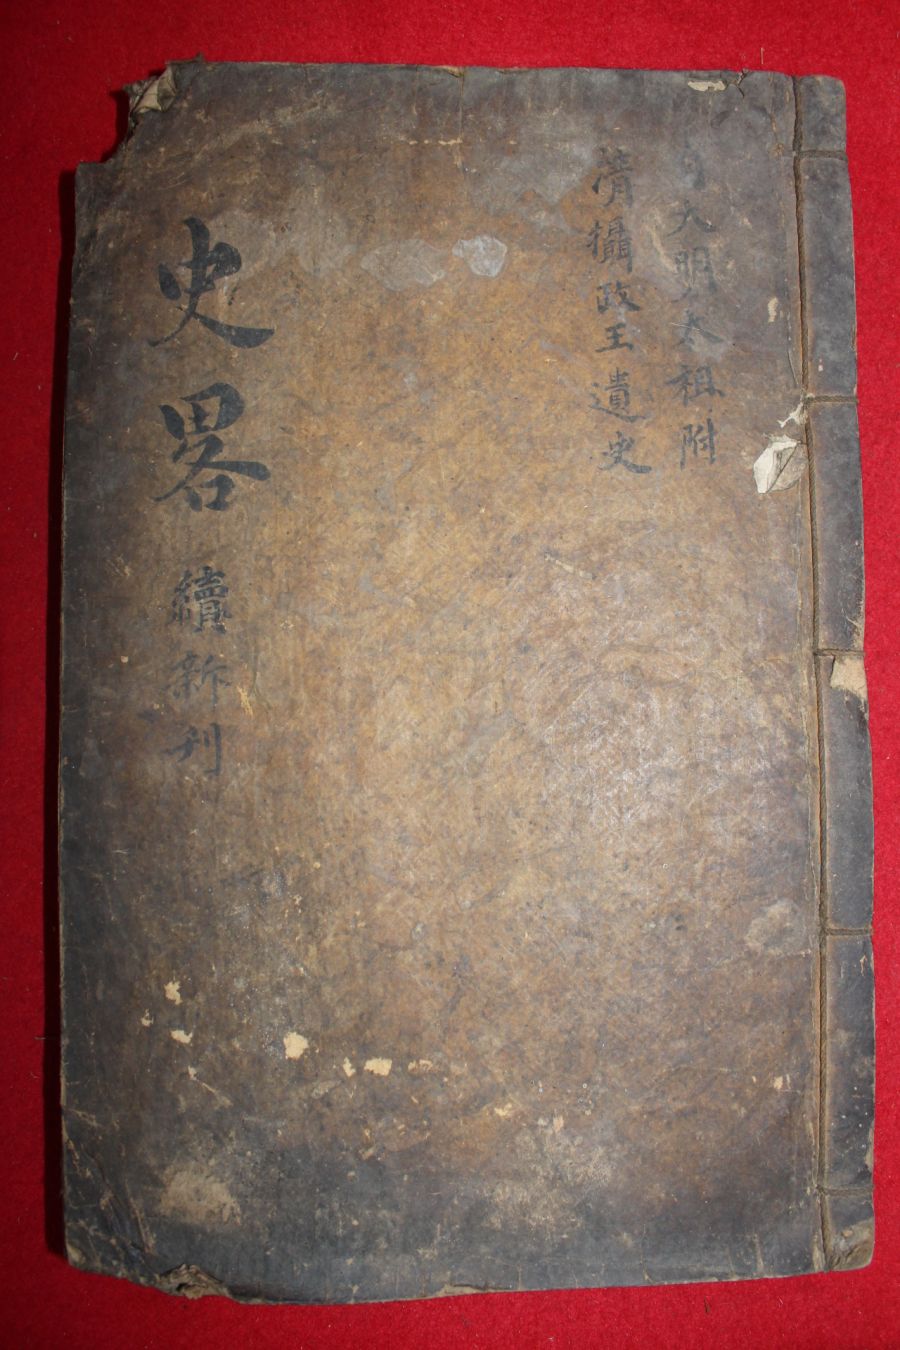 自大明太祖附
淸攝政王遺史
史畧 續新刊